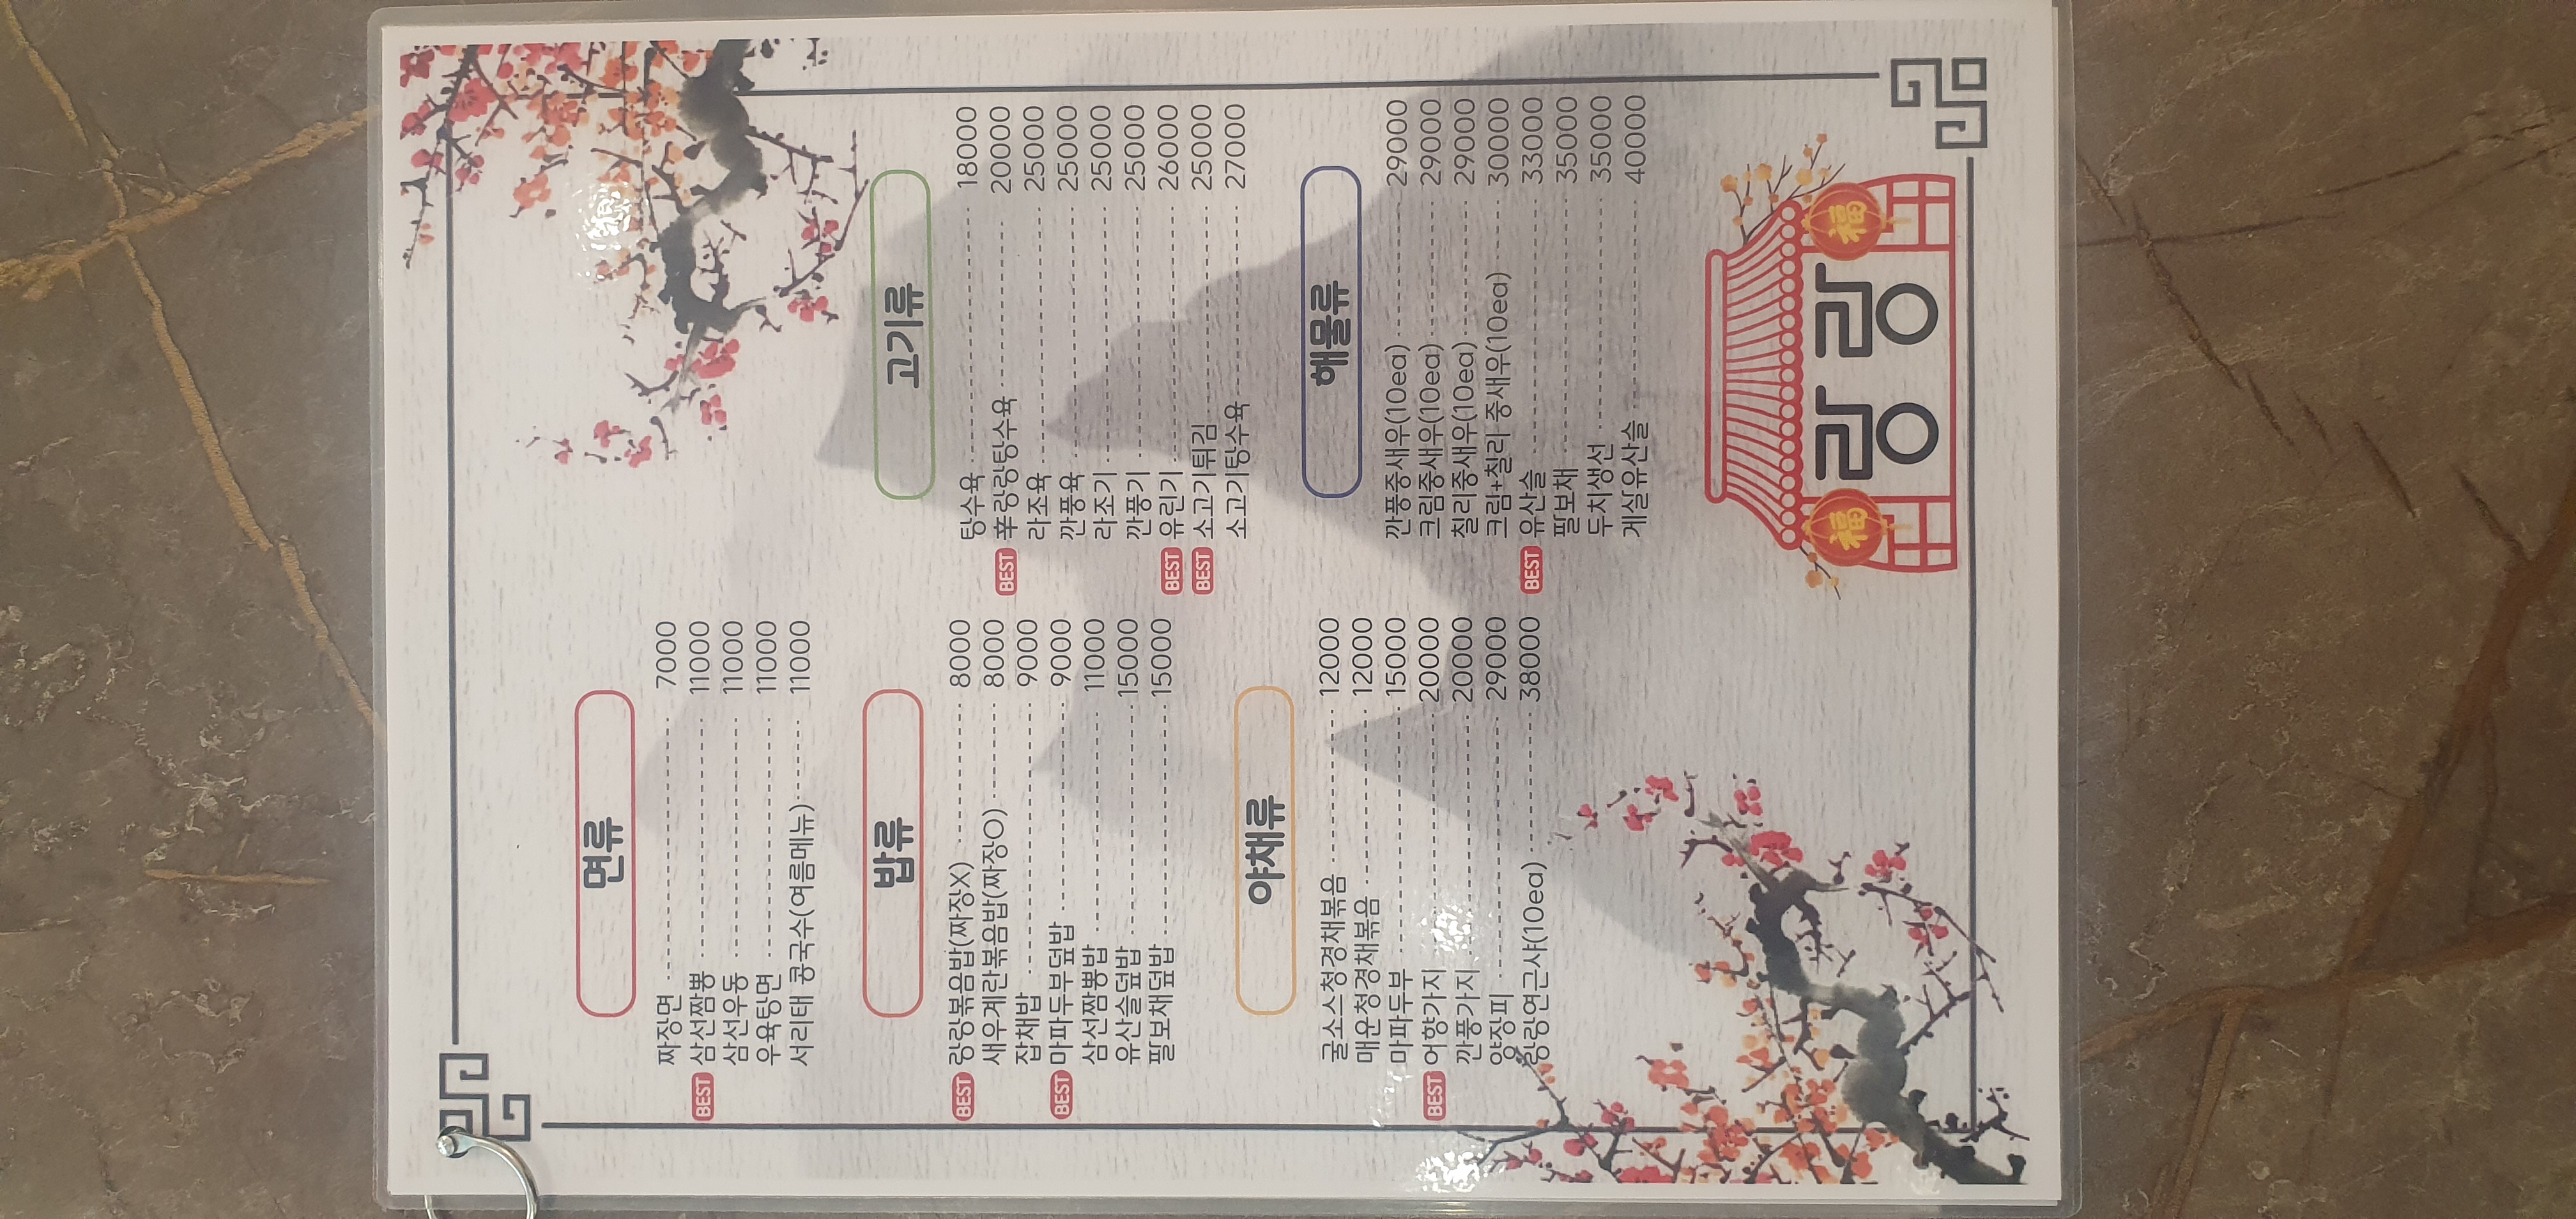 면류
짜장면 7000
BEST 삼선짬뽕 11000
삼선우동 11000
우육탕면 11000
서리태 콩국수(여름메뉴) 11000
밥류
BEST 랑랑볶음밥(짜장X) 8000
새우계란볶음밥(짜장O) 8000
잡채밥 9000
BEST 마파두부덮밥 9000
삼선짬뽕밥 11000
유산슬덮밥 15000
팔보채덮밥 15000
야채류
굴소스청경채볶음 12000
매운청경채볶음 12000
마파두부 15000
BEST 어향가지 20000
깐풍가지 20000
양장피 29000
랑랑연근샤(10ea) 38000
고기류
탕수육 18000
BEST 辛랑랑탕수육 20000
라조육 25000
깐풍육 25000
라조기 25000
깐풍기 25000
BEST 유린기 26000
BEST 소고기튀김 25000
소고기탕수육 27000
해물류
깐풍중새우(10ea) 29000
크림중새우(10ea) 29000
칠리중새우(10ea) 29000
크림+칠리 중새우(10ea) 30000
BEST 유산슬 33000
팔보채 35000
두치생선 35000
게살유산슬 40000
福 랑랑 福